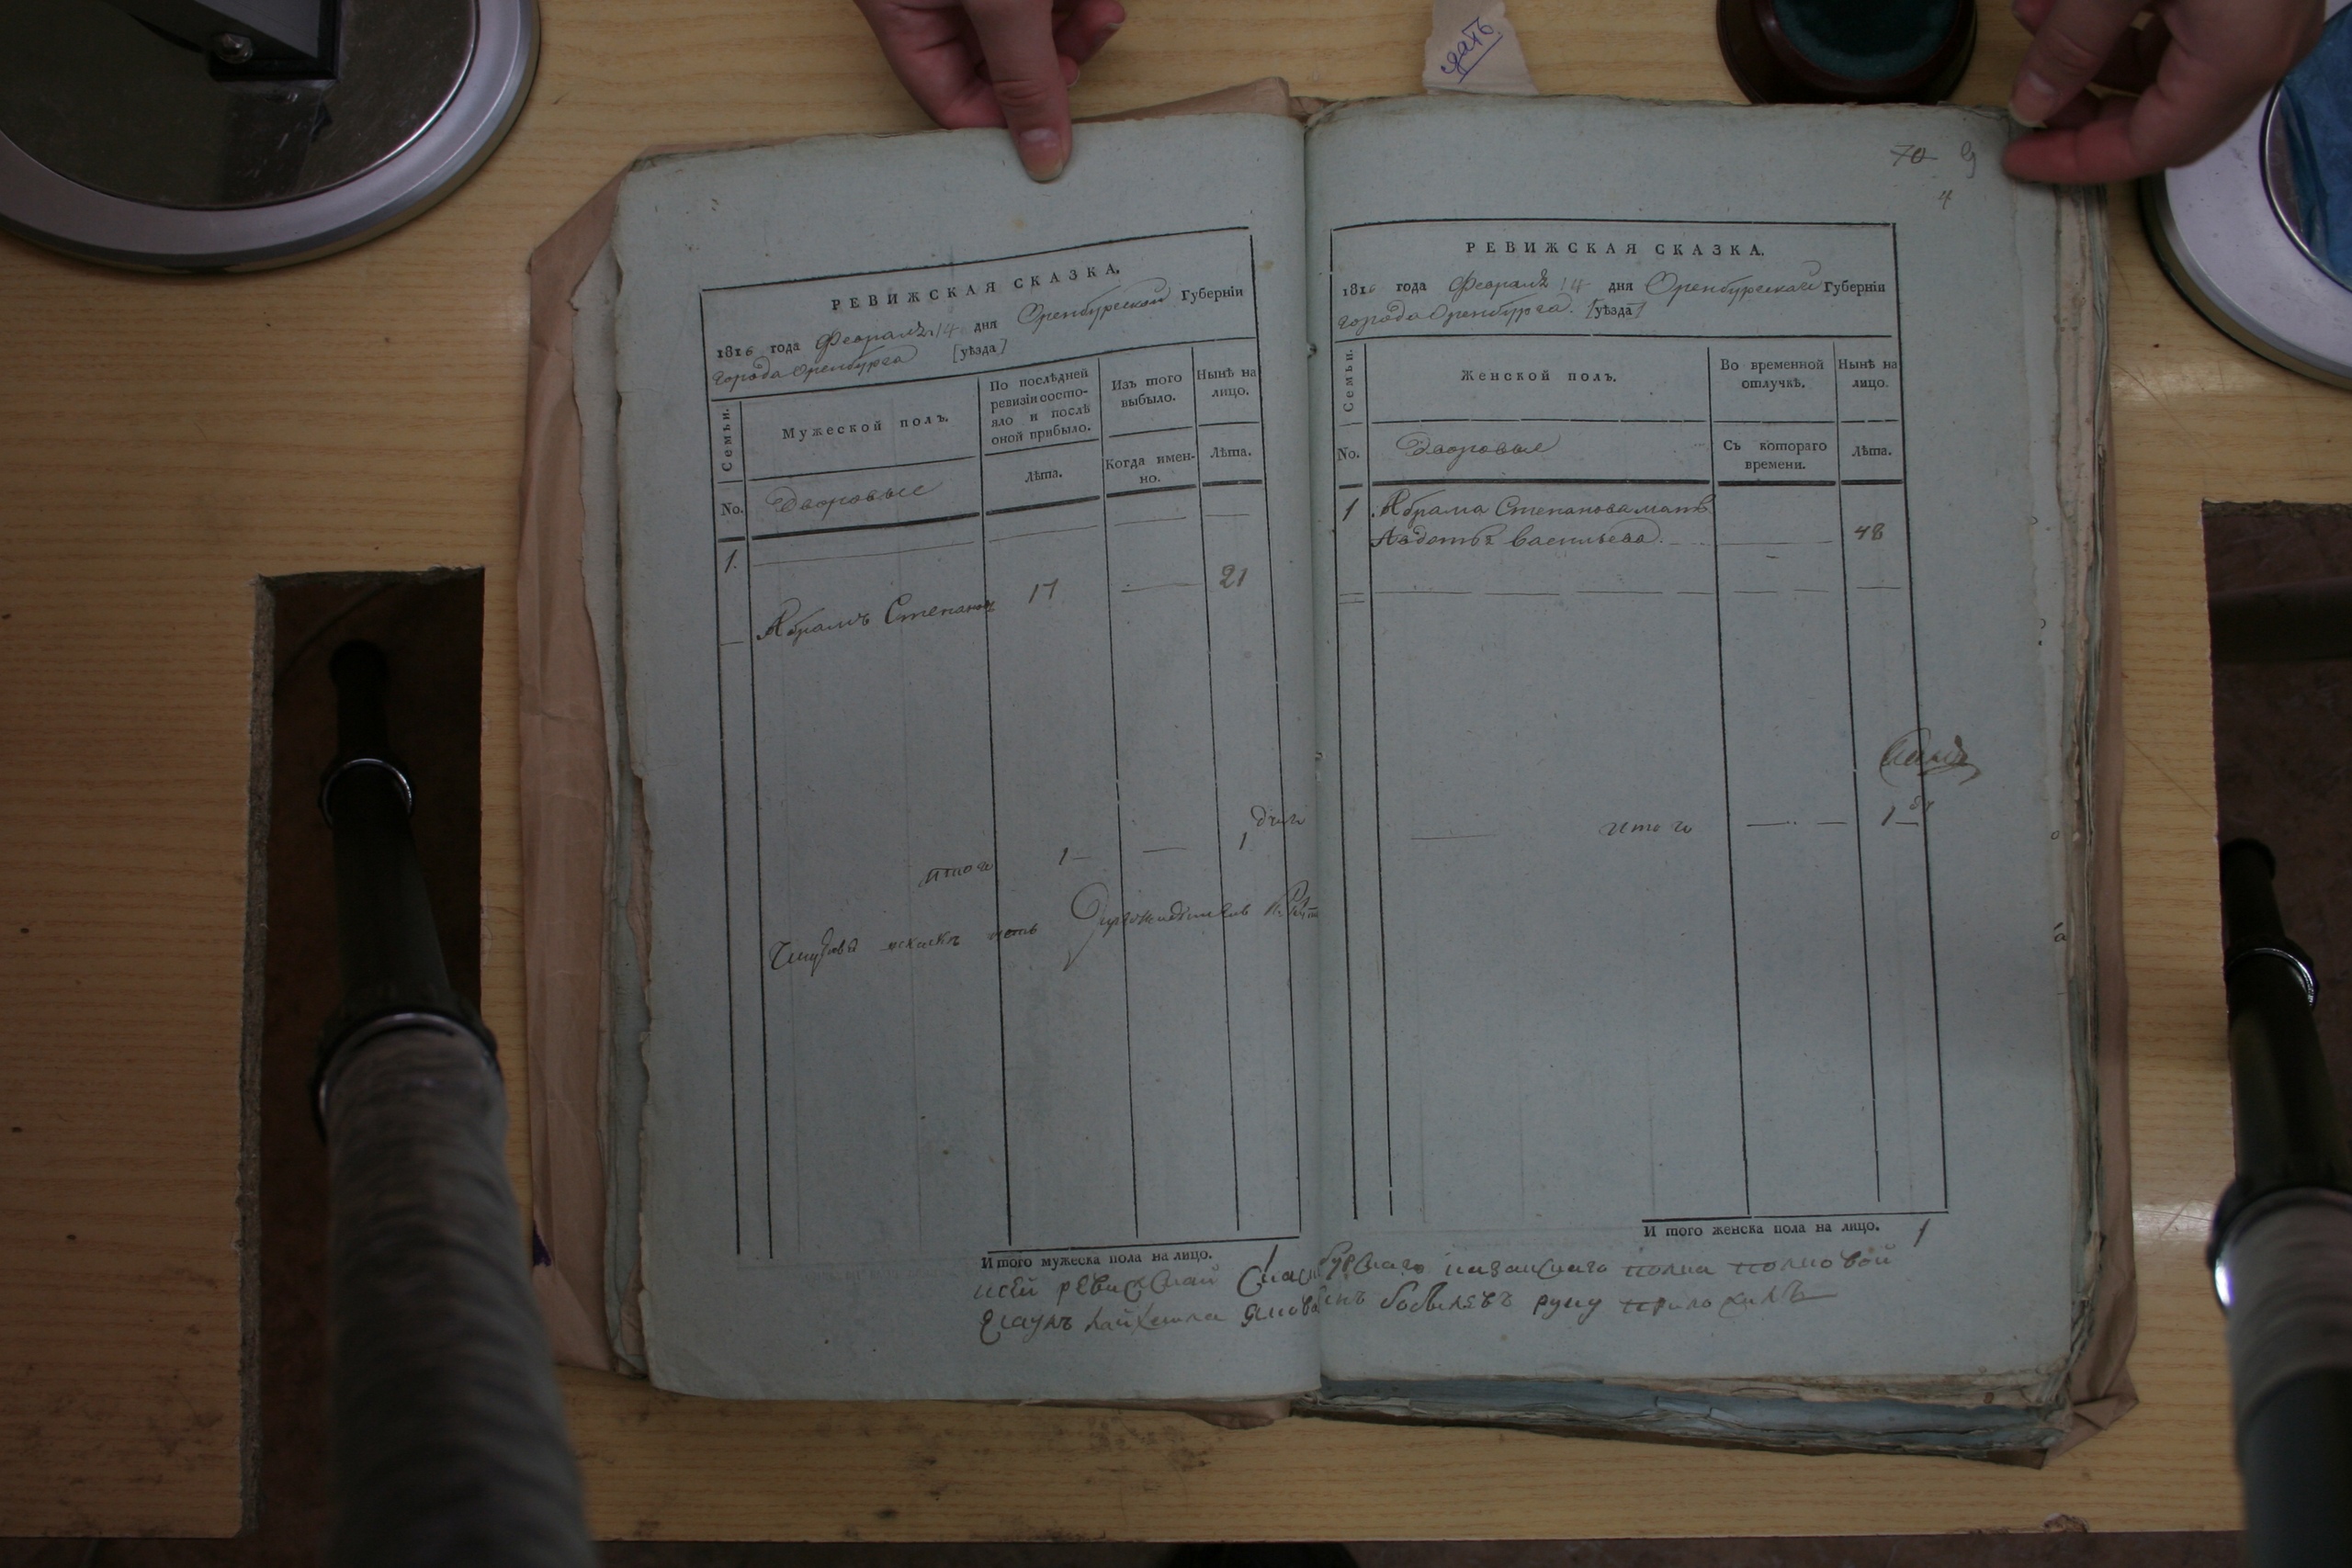 сдать
РЕВИЖСКАЯ СКАЗКА.
1816 года Февраля 14 дня Оренбургской Губернiи
города Оренбурга [уѣзда]
Семьи.
Мужеской полъ.
По послѣдней ревизiи состояло и послѣ оной прибыло.
Изъ того выбыло.
Нынѣ на лицо.
No.
Дворовые
Лѣта.
Когда именно.
Лѣта.
1.
Абрамъ Степановъ 17 21
итого 1 1
И того мужеска пола на лицо. 1
70 9
4
РЕВИЖСКАЯ СКАЗКА.
1816 года Февраля 14 дня Оренбургской Губернiи
города Оренбурга. [уѣзда]
Семьи.
Женской полъ.
Во временной отлучкѣ.
Нынѣ на лицо.
No.
Дворовые
Съ котораго времени.
Лѣта.
1 Абрама Степанова мать
Авдотья Васильева. 48
итого 1
И того женска пола на лицо. 1
ксей ревижской бургскаго казачьяго полка полковой
есаулъ руку приложилъ